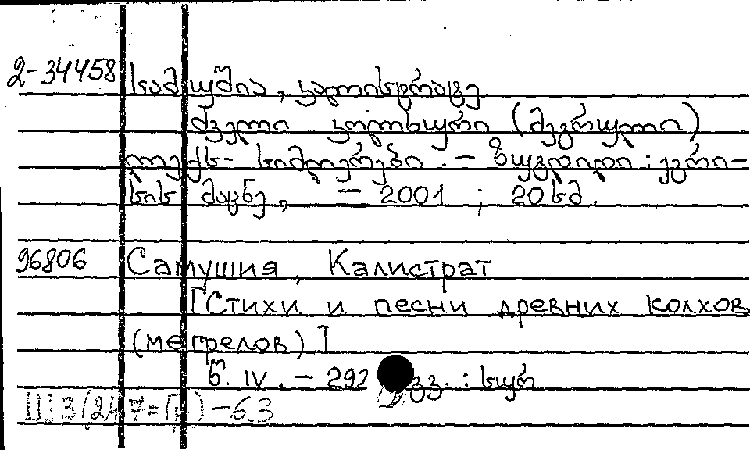 2-34458 სამუშია, კალისტრატე
ძველი კოლხური (მეგრული)
ლექს-სიმღერები. – ზუგდიდი : ეგრი-
სის მაცნე, – 2001 ; 20 სმ.
96806 Самушия, Калистрат
[Стихи и песни древних колхов
(мегрелов)]
წ. IV. – 292 გვ. : სურ